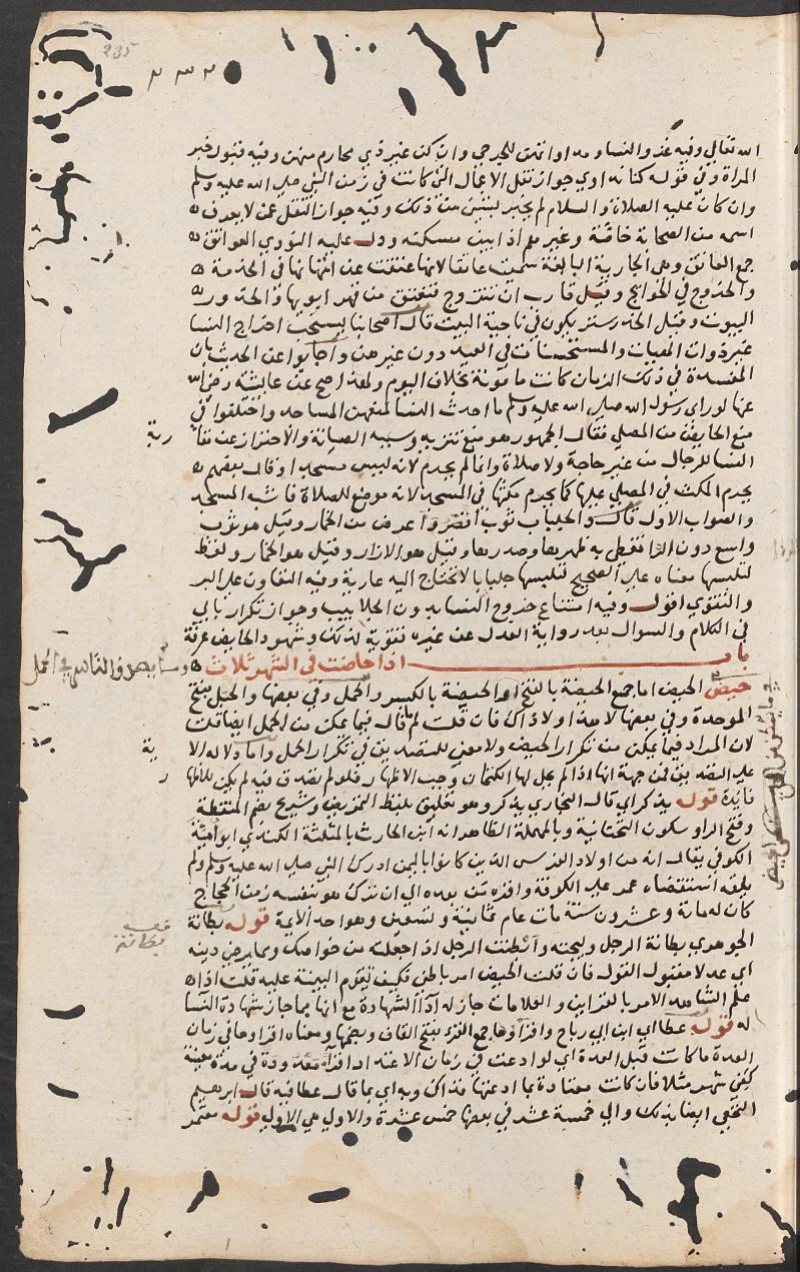 235
٢٣٢
الله تعالى وفيه غزو النساء ومداواتهن للجرحى وان كن غير ذي محارم منهن وفيه قبول خبر
المراة وفي قوله كنا نداوي جواز نقل الاعمال التي كانت في زمن النبي صلى الله عليه وسلم
وان كان عليه الصلاة والسلام لم يخبر بشيء من ذلك وفيه جواز النقل عمن لا يعرف
اسمه من الصحابة خاصة وغيرهم اذا بين مسكنه ودل عليه النووي العواتق
جمع العاتق وهي الجارية البالغة سميت عاتقا لانها عتقت عن امتهانها في الخدمة
والخروج في الحوائج وقيل قارب ان تتزوج فتعتق من قهر ابويها والخدور
البيوت وقيل الخدر ستر يكون في ناحية البيت قال اصحابنا يستحب اخراج النسا
غير ذوات الهيات والمستحسنات في العيد دون غيرهن واجابوا عن الحديث بان
المفسدة في ذلك الزمان كانت مامونة بخلاف اليوم ولهذا صح عن عايشة رضي الله
عنها لو راى رسول الله صلى الله عليه وسلم ما احدث النسا لمنعهن المساجد واختلفوا في
منع الحايض من المصلى فقال الجمهور هو منع تنزيه وسببه الصيانة والاحتراز عن مقا
رنة
النسا للرجال من غير حاجة ولا صلاة وانما لم يحرم لانه ليس مسجدا وقال بعضهم
يحرم المكث في المصلى عليها كما يحرم مكثها في المسجد لانه موضع للصلاة فاشبه المسجد
والصواب الاول قال والجلباب ثوب اقصر واعرض من الخمار وقيل هو ثوب
واسع دون الرداء تغطي به ظهرها وصدرها وقيل هو الازار وقيل هو الخمار ولفظ
لتلبسها معناه على الصحيح لتلبسها جلبابا لا تحتاج اليه عارية وفيه التعاون على البر
والتقوى اقول وفيه امتناع خروج النسا بدون الجلابيب وجواز تكرار بابي
في الكلام والسوال بعد رواية العدل عن غيره تقوية لذلك وشهود الحايض عرفة
باب اذا حاضت في الشهر ثلاث
حيض الحيض اما جمع الحيضة بالفتح او الحيضة بالكسر والحمل وفي بعضها والحبل بفتح
الموحدة وفي بعضها لا هذا ولا ذاك فان قلت لم قال فيما يمكن من الحمل ايضا قلت
لان المراد فيما يمكن من تكرار الحيض ولا معنى للتصديق في تكرار الحمل واما دلالة الاية
على التصديق فمن جهة انها اذا لم يحل لها الكتمان وجب الاظهار فلو لم تصدق فيه لم يكن للاظها
ر
فائدة قوله يذكر اي قال البخاري يذكر وهو تعليق بلفظ التمريض وشريح بضم المنقطة
وفتح الراء وسكون التحتانية وبالمهملة الظاهر انه ابن الحارث بالمثلثة الكندي ابو امية
الكوفي يقال انه من اولاد الفرس الذين كانوا باليمن ادرك النبي صلى الله عليه وسلم ولم
يلقه استقضاه عمر على الكوفة واقره من بعده الى ان ترك هو بنفسه زمن الحجاج
كان له مائة وعشرون سنة مات عام ثمانية وتسعين وهو احد الايمة قوله بطانة
بطانة
الجوهري بطانة الرجل وليجته وابطنت الرجل اذا جعلته من خواصك وممن يرضى دينه
اي عدلا مقبول القول فان قلت الحيض امر باطني فكيف تقوم البينة عليه قلت اذا
علم الشاهد الامر بالقراين والعلامات جاز له اداء الشهادة مع انها مما جاز شهادة النسا
له قوله عطا اي ابن ابي رباح واقراؤها جمع القرء بفتح القاف وبضمها ومعناه اقراوها في زمان
العدة ما كانت قبل العدة اي لو ادعت في زمان الاعتداد اقراء معدودة في مدة معينة
كفى شهر مثلا فان كانت معتادة بما ادعتها فذاك وبه اي بما قال عطا فيه قال ابرهيم
النخعي ايضا بذلك والى خمسة عشر في بعضها خمس عشرة والاولى هي الاولى قوله معتمر